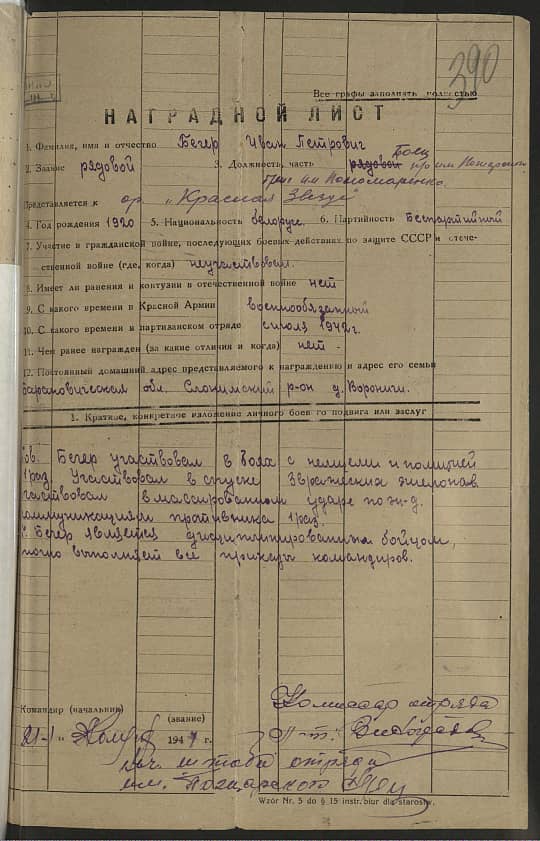 390
Все графы заполнять полностью
НАГРАДНОЙ ЛИСТ
1. Фамилия, имя и отчество Бегер Иван Петрович
2. Звание рядовой 3. Должность, часть рядовой Боец
п/о им. Пожарского
бриг им Пономаренко
Представляется к ор. "Красная Звезда"
4. Год рождения 1920 5. Национальность белорус. 6. Партийность Беспартийный
7. Участие в гражданской войне, последующих боевых действиях по защите СССР и отече-
ственной войне (где, когда) неучаствовал.
8. Имеет ли ранения и контузии в отечественной войне нет
9. С какого времени в Красной Армии военнообязанный
10. С какого времени в партизанском отряде с июля 1942 г.
11. Чем ранее награжден (за какие отличия и когда) нет.
12. Постоянный домашний адрес представляемого к награждению и адрес его семьи
Барановичская обл. Слонимский р-он д. Вороничи.
1. Краткое, конкретное изложение личного боевого подвига или заслуг
ов. Бегер участвовал в боях с немцами и полицией
1 раз. Участвовал в спуске 3 вражеских эшелонов
частвовал в массированном ударе по ж-д.
коммуникациям противника 1 раз.
т. Бегер является дисциплинированным бойцом,
точно выполняет все приказы командиров.
Командир (начальник) Комиссар отряда
(звание)
194 г.
нач. штаба отряда
им. Пожарского
Wzór Nr. 5 do § 15 instr. biur dla starostw.